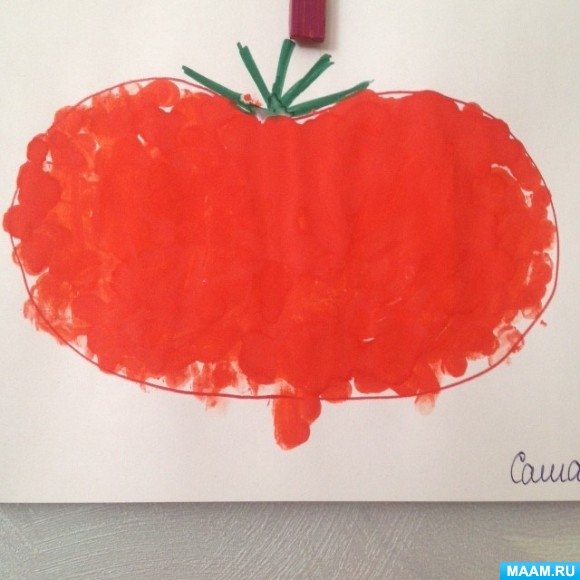 Саша
MAAM.RU